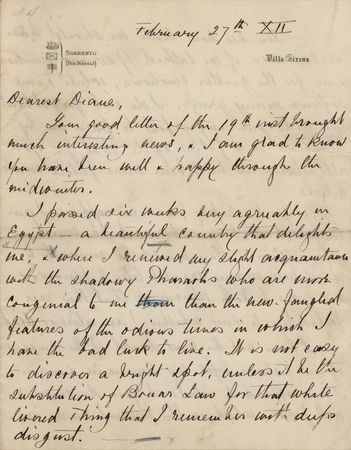 #4
February 27th XII
SORRENTO
(PER NAPOLI)
Villa Sirena
Dearest Diane,
Your good letter of the 19th inst brought
much interesting news, & I am glad to know
you have been well & happy through the
midwinter.
I passed six weeks very agreeably in
Egypt – a beautiful country that delights
me, & where I renewed my slight acquaintance
with the shadowy Pharaohs who are more
congenial to me them than the new-fangled
features of the odious times in which I
have the bad luck to live. It is not easy
to discover a bright spot, unless it be the
substitution of Bonar Law for that white
livered thing that I remember with deep
disgust.